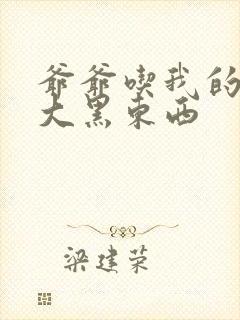 爷爷喫我的
大黑东西
梁建荣